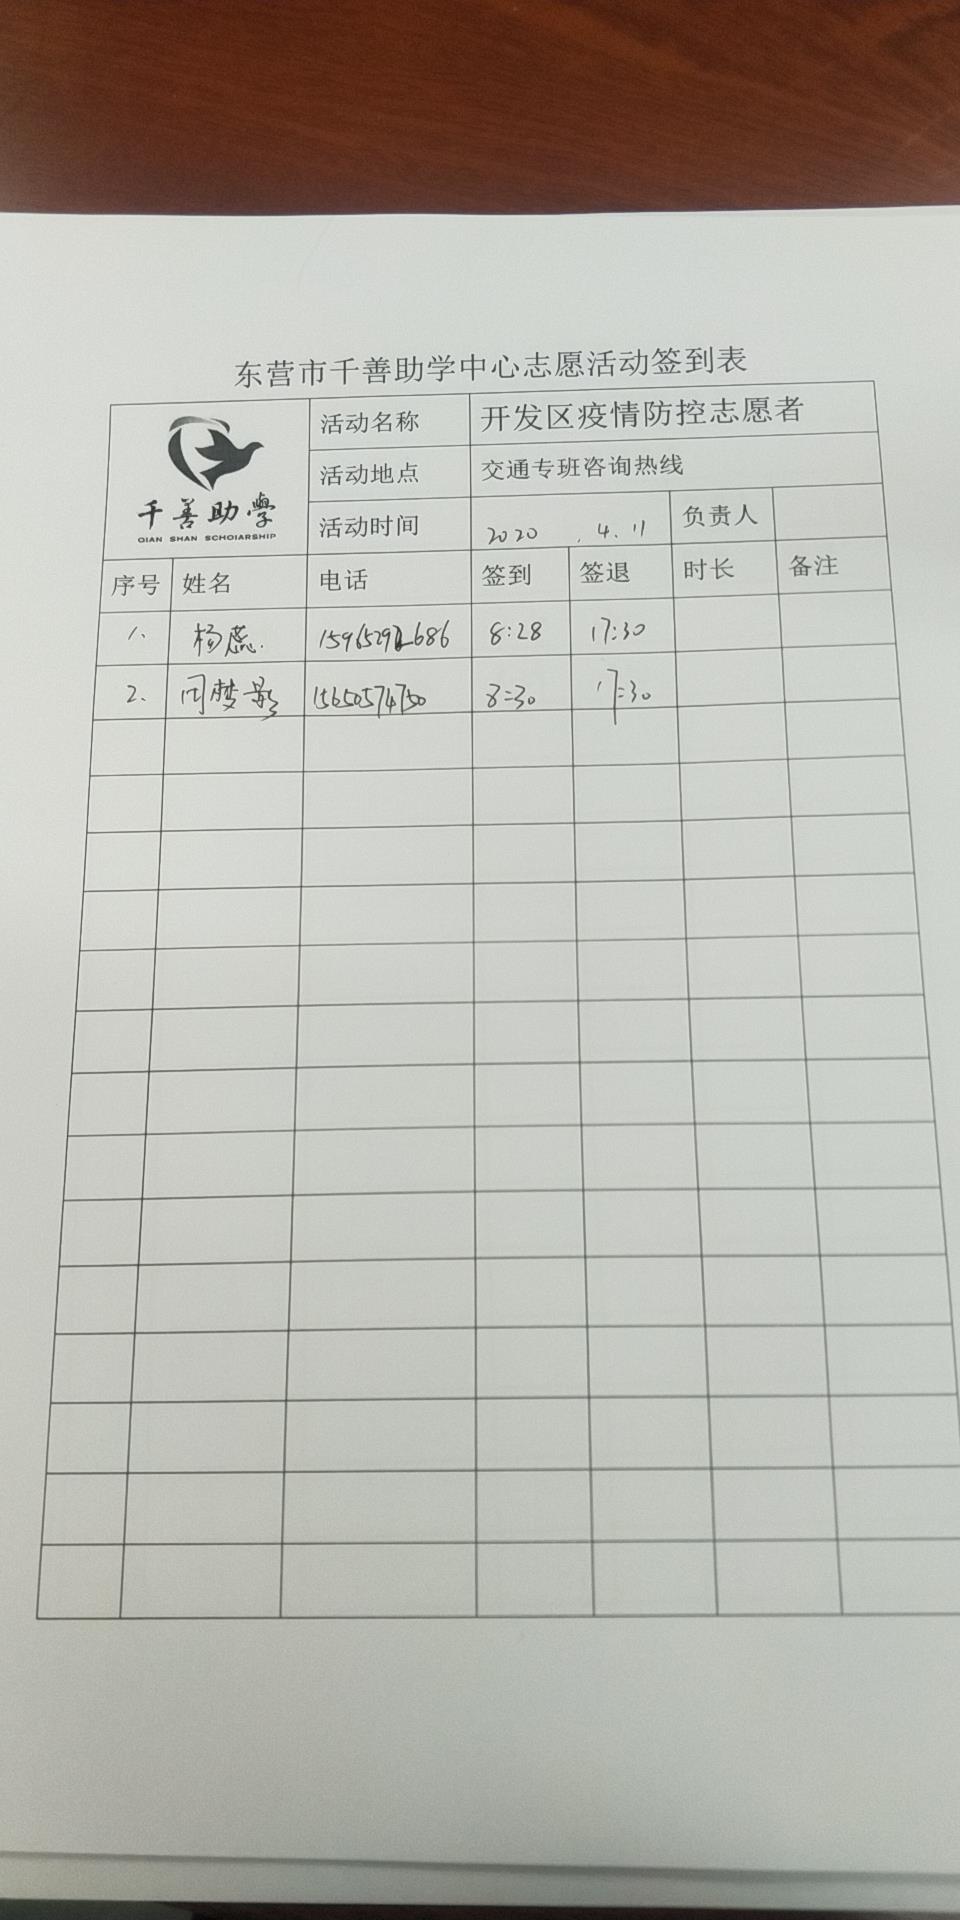 东营市千善助学中心志愿活动签到表
千善助學
QIAN SHAN SCHOIARSHIP
活动名称 开发区疫情防控志愿者
活动地点 交通专班咨询热线
活动时间 2020 .4.11 负责人
序号 姓名 电话 签到 签退 时长 备注
1. 杨蕊. 8:28 17:30
2. 闫梦影 15650574750 8:30 17:30